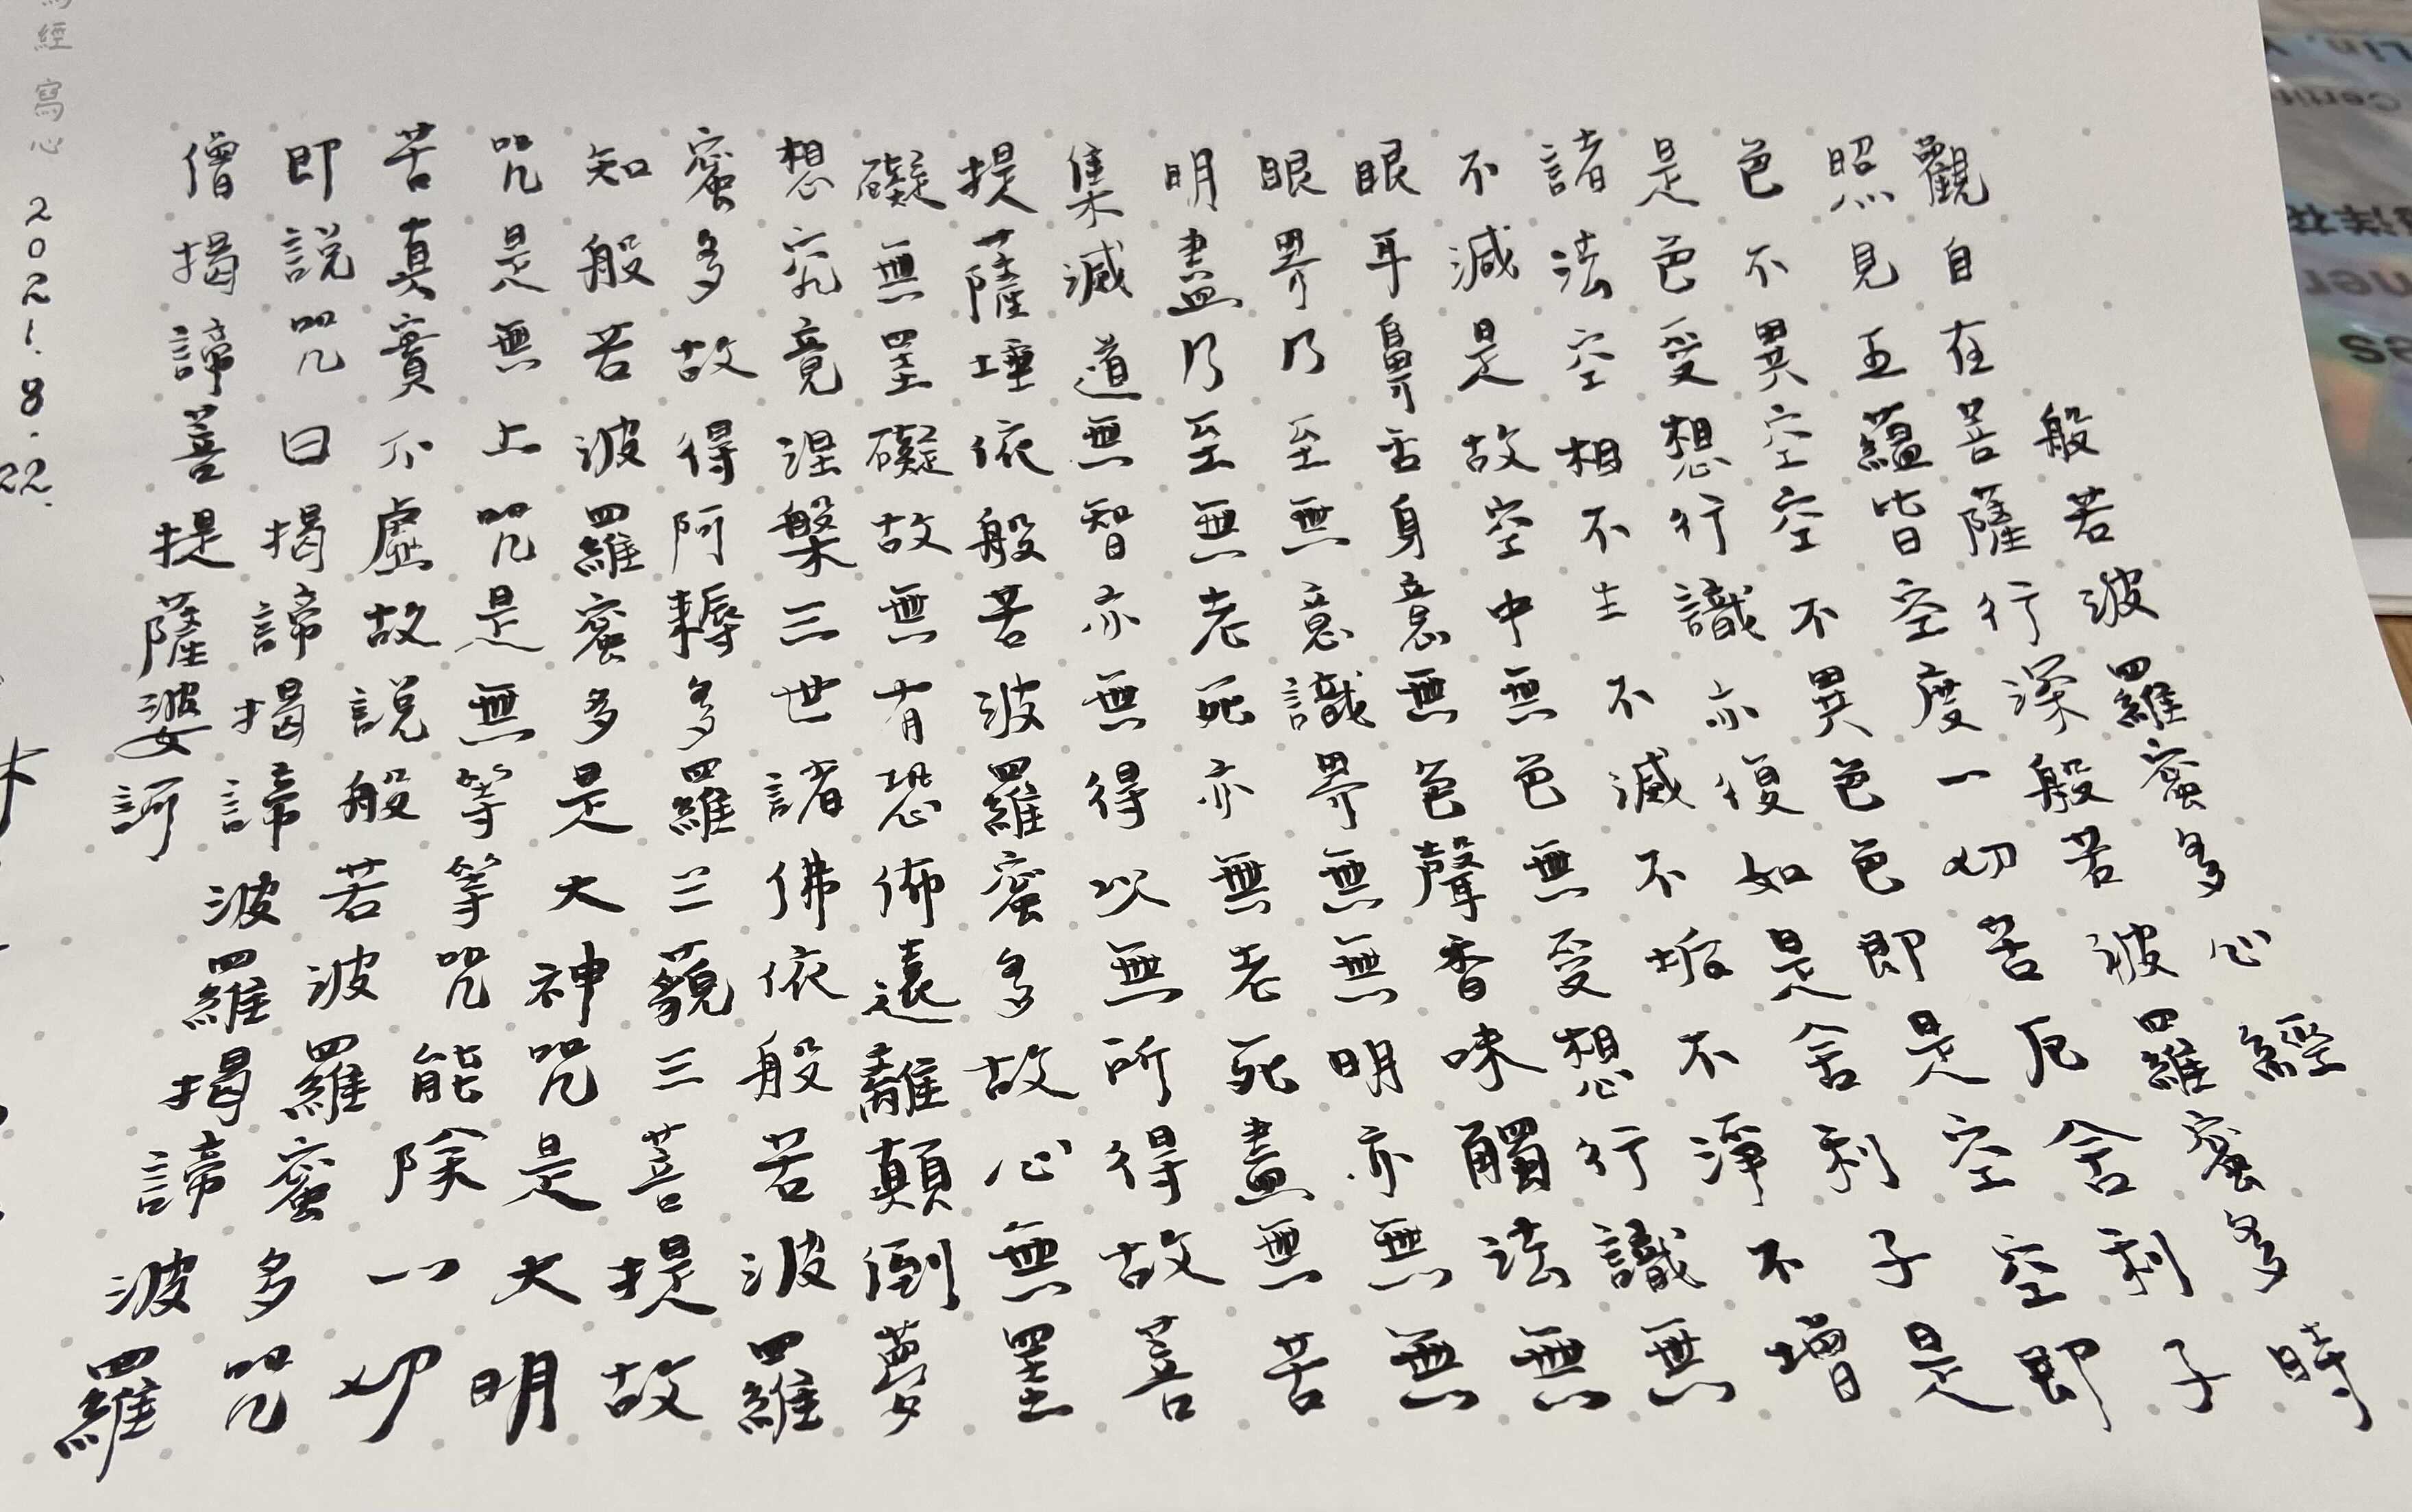 般若波羅蜜多心經
觀自在菩薩行深般若波羅蜜多時
照見五蘊皆空度一切苦厄舍利子
色不異空空不異色色即是空空即
是色受想行識亦復如是舍利子是
諸法空相不生不滅不垢不淨不增
不減是故空中無色無受想行識無
眼耳鼻舌身意無色聲香味觸法無
眼界乃至無意識界無無明亦無無
明盡乃至無老死亦無老死盡無苦
集滅道無智亦無得以無所得故菩
提薩埵依般若波羅蜜多故心無罣
礙無罣礙故無有恐怖遠離顛倒夢
想究竟涅槃三世諸佛依般若波羅
蜜多故得阿耨多羅三藐三菩提故
知般若波羅蜜多是大神咒是大明
咒是無上咒是無等等咒能除一切
苦真實不虛故說般若波羅蜜多咒
即說咒曰揭諦揭諦波羅揭諦波羅
僧揭諦菩提薩婆訶
經 寫心 2021.8.22.